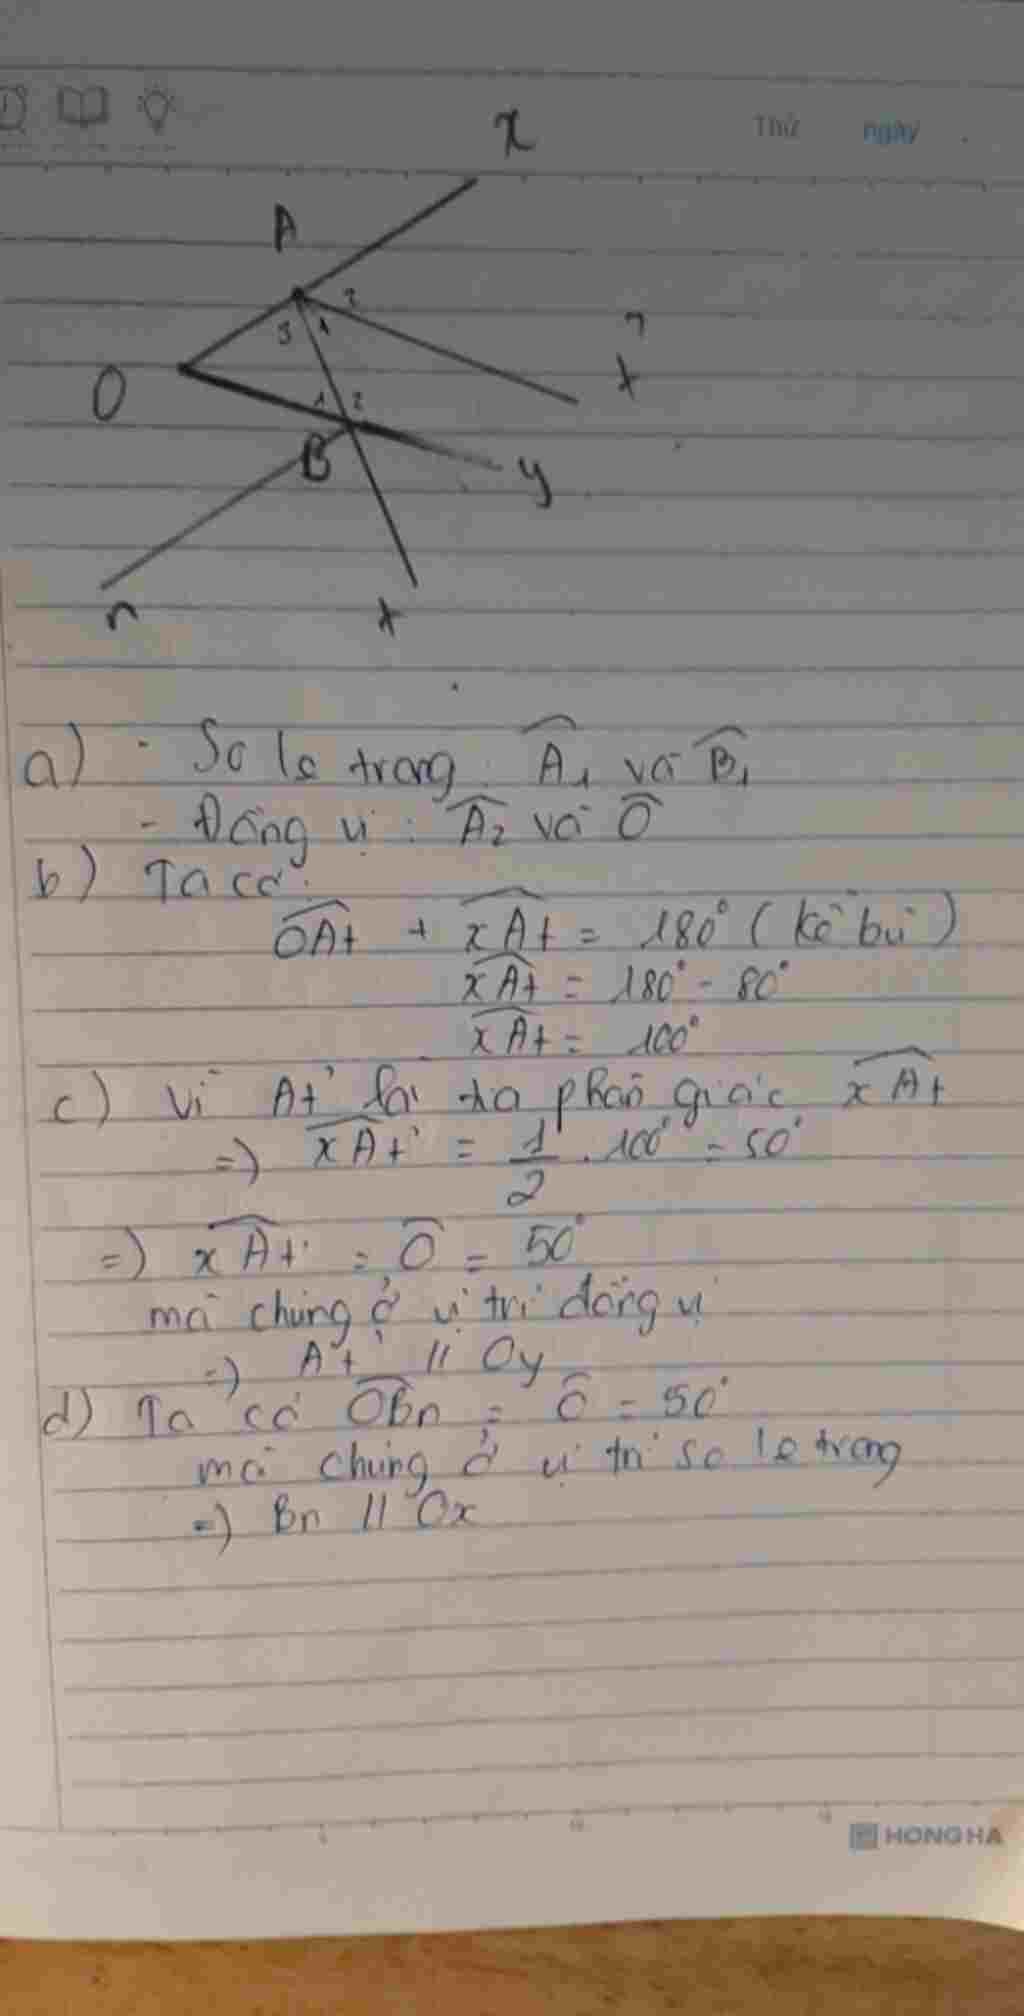 Thứ ngày
x
A
2
3 1
?
t
O
1 2
B
y
n
t
a) - So le trong: A₁ và B₁
- Đồng vị: A₂ và O
b) Ta có:
OAt + xAt = 180° (kề bù)
xAt = 180° - 80°
xAt = 100°
c) Vì At' là tia phân giác xAt
=) xAt' = 1/2 . 100° = 50°
=) xAt' = O = 50°
mà chúng ở vị trí đồng vị
=) At' // Oy
d) Ta có OBn = O = 50°
mà chúng ở vị trí so le trong
=) Bn // Ox
HONG HA